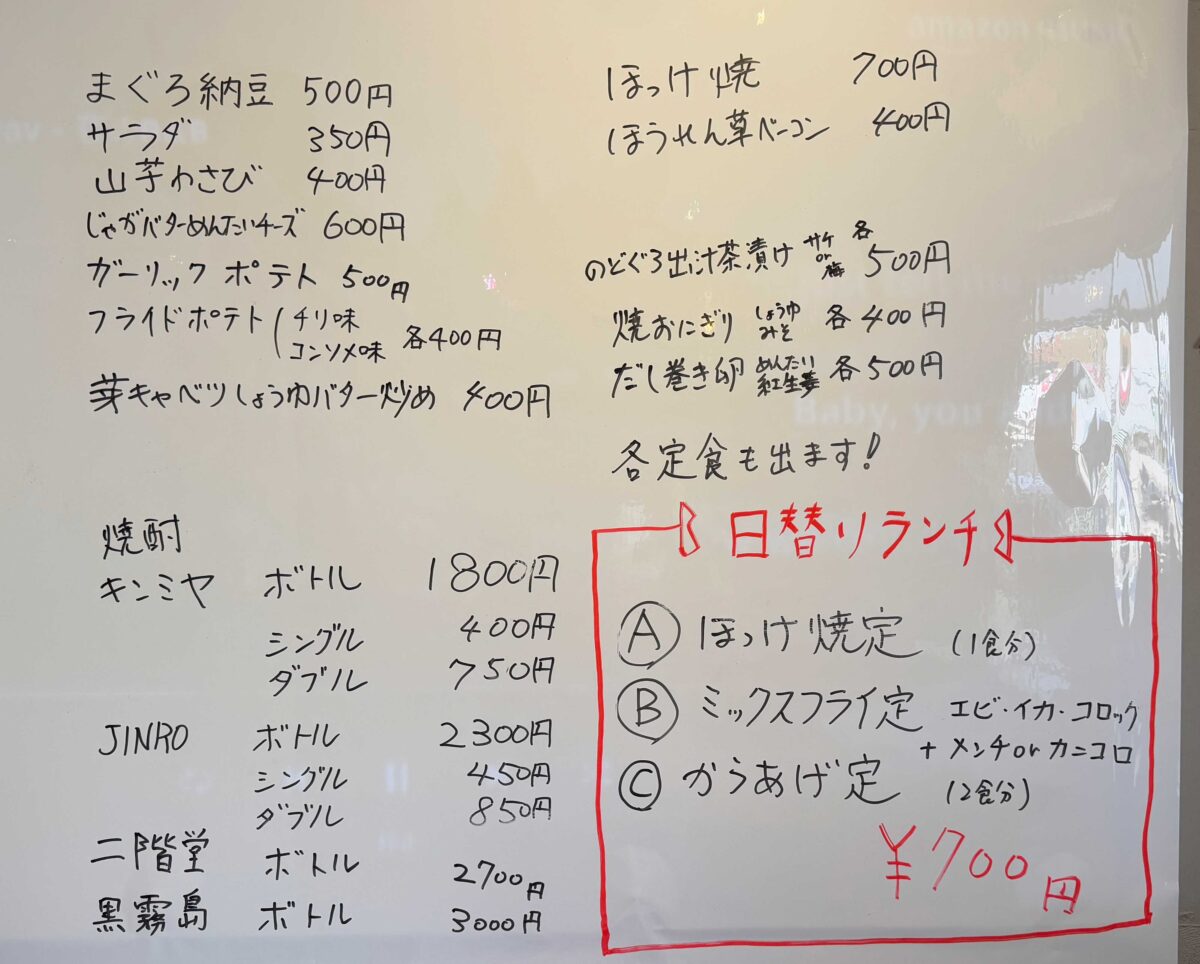 まぐろ納豆 500円
サラダ 350円
山芋わさび 400円
じゃがバターめんたいチーズ 600円
ガーリックポテト 500円
フライドポテト(チリ味
コンソメ味 各400円
芽キャベツしょうゆバター炒め 400円
ほっけ焼 700円
ほうれん草ベーコン 400円
のどぐろ出汁茶漬け サケor梅 各500円
焼おにぎり しょうゆ みそ 各400円
だし巻き卵 めんたい 紅生姜 各500円
各定食も出ます!
焼酎
キンミヤ ボトル 1800円
シングル 400円
ダブル 750円
JINRO ボトル 2300円
シングル 450円
ダブル 850円
二階堂 ボトル 2700円
黒霧島 ボトル 3000円
日替りランチ
Ⓐ ほっけ焼定 (1食分)
Ⓑ ミックスフライ定 エビ・イカ・コロッケ
+メンチorカニコロ
Ⓒ からあげ定 (2食分)
¥700円
Baby, you